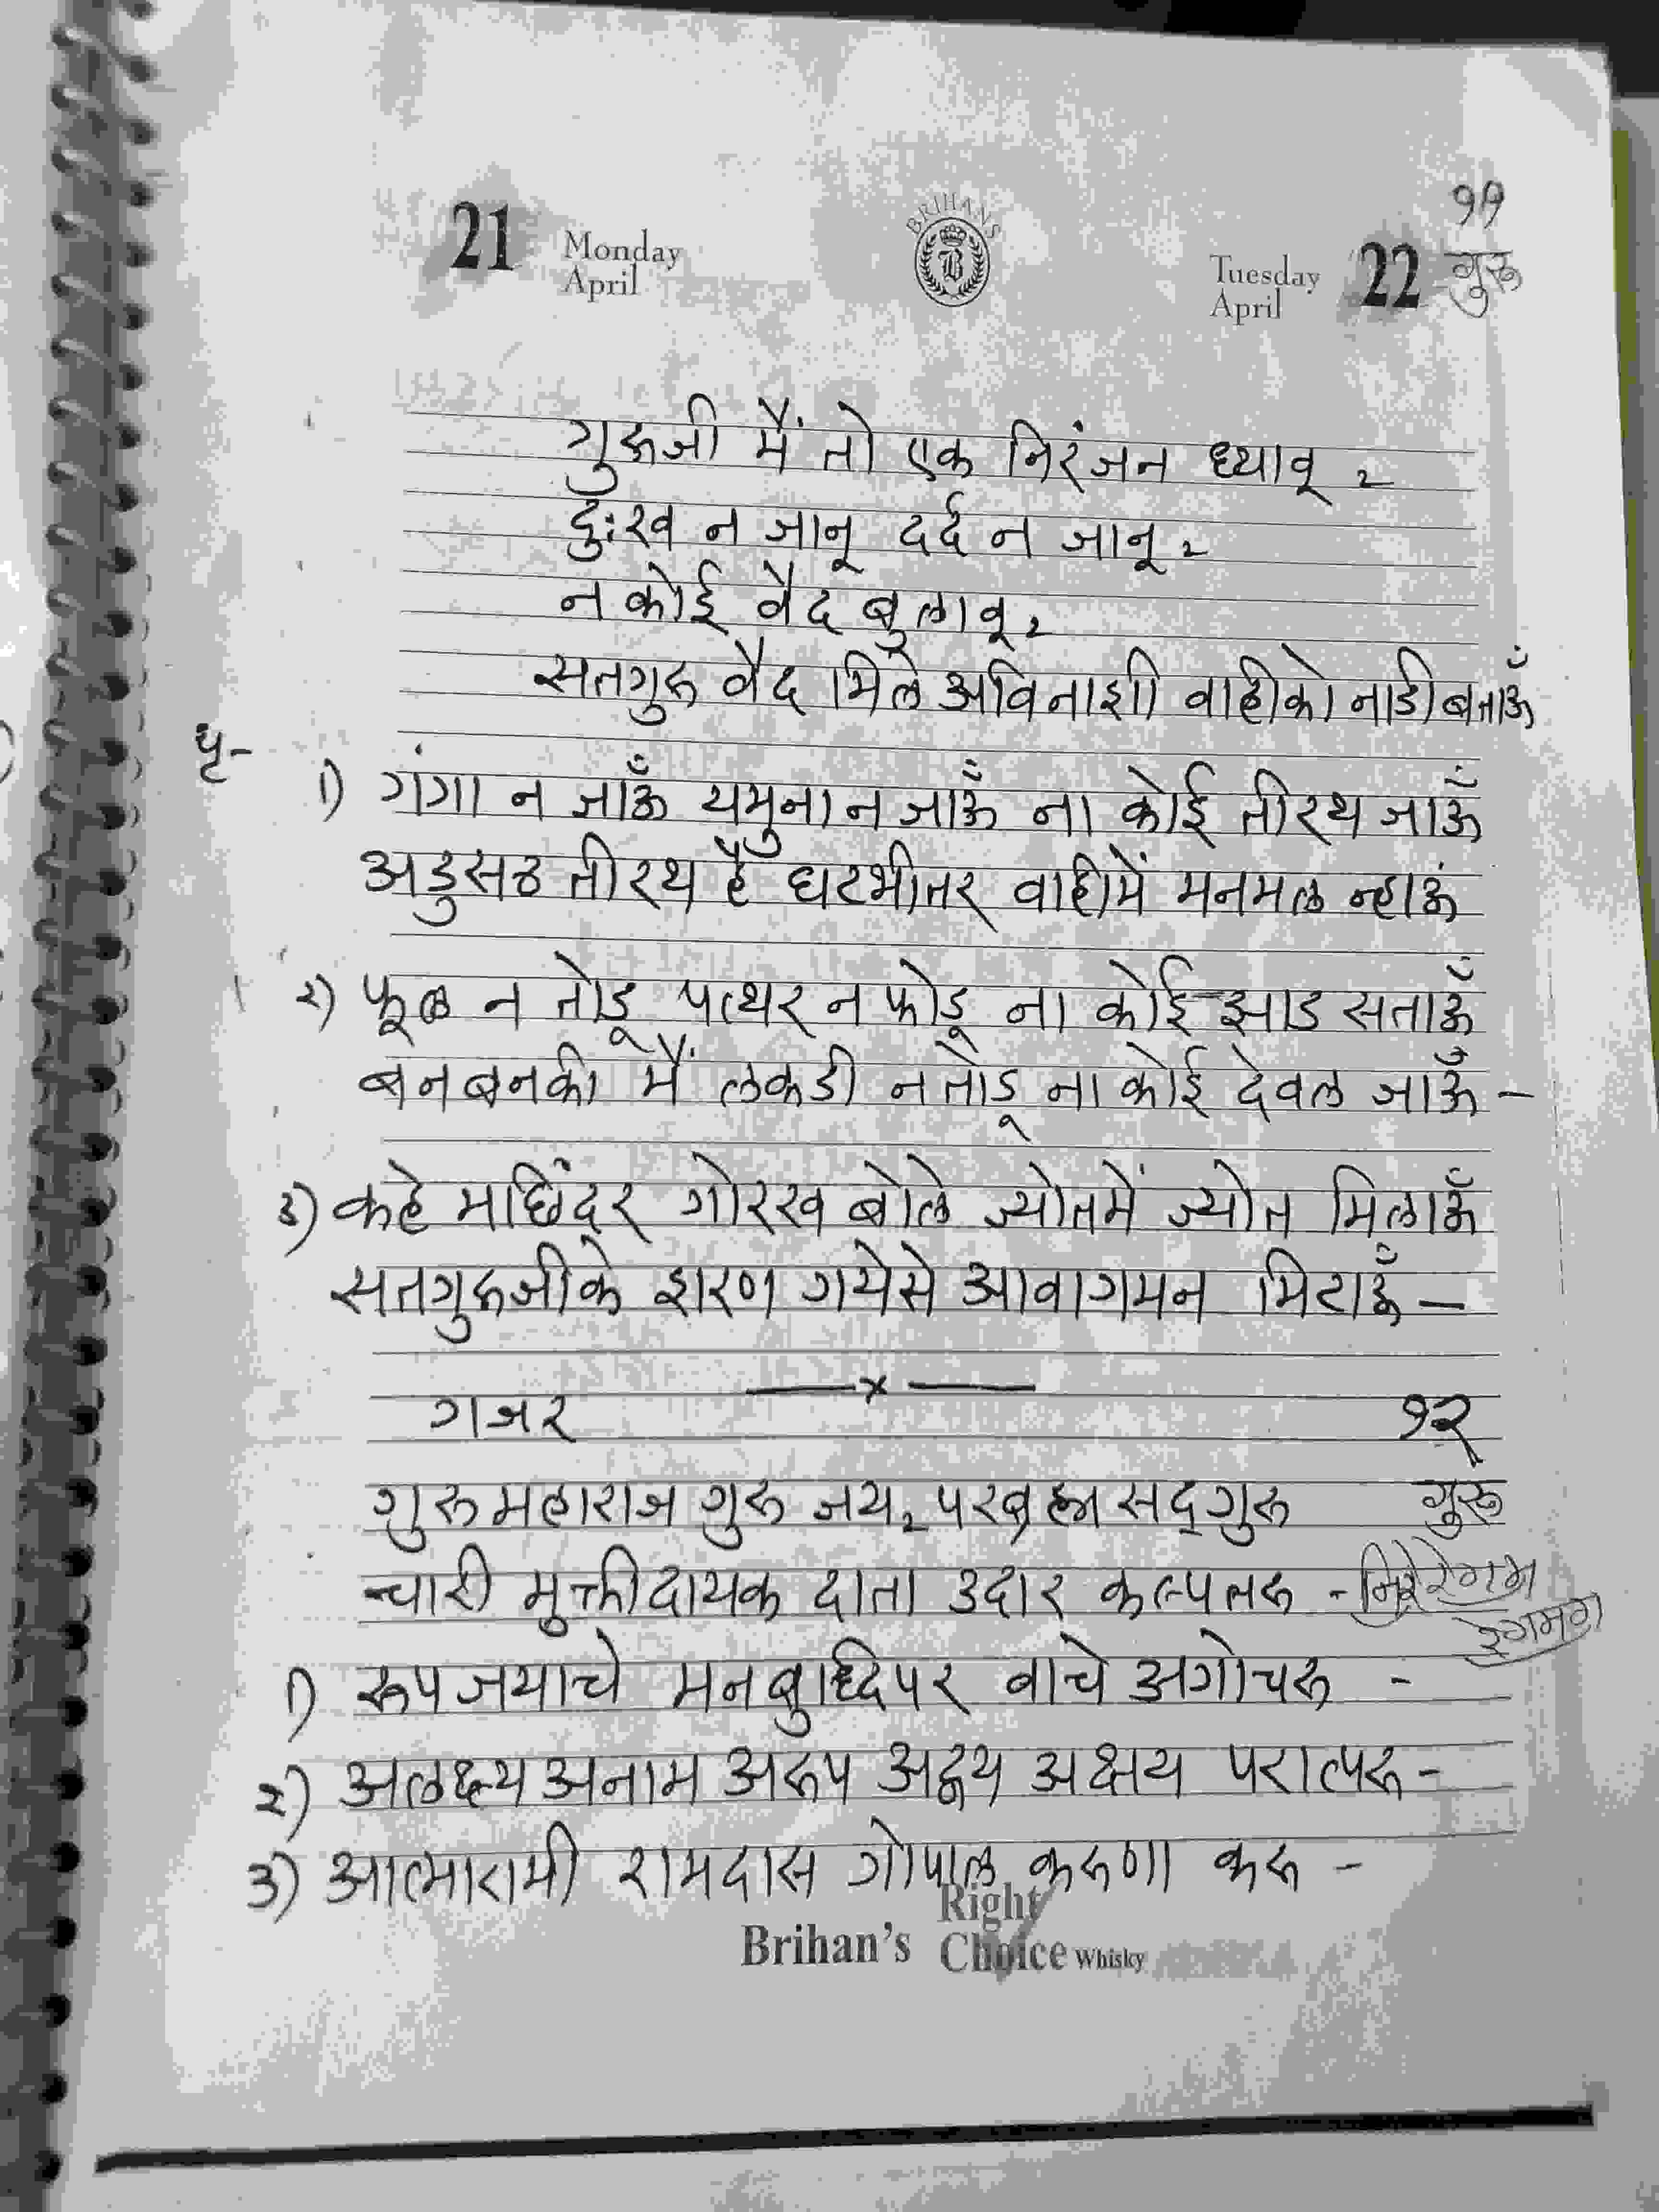 ११
21 Monday April BRIHANS B Tuesday April 22 गुरू
गुरूजी मैं तो एक निरंजन ध्यावू २
दुःख न जानू दर्द न जानू २
न कोई वैद बुलावू २
सतगुरू वैद मिले अविनाशी वाहीको नाडी बताऊँ
धृ-
१) गंगा न जाऊँ यमुना न जाऊँ ना कोई तीरथ जाऊँ
अडुसठ तीरथ है घटभीतर वाहीमें मनमल न्हाऊं
२) फूल न तोडू पत्थर न फोडू ना कोई झाड सताऊँ
बनबनकी मैं लकडी न तोडू ना कोई देवल जाऊँ -
३) कहे मछिंदर गोरख बोले ज्योतमें ज्योत मिलाऊँ
सतगुरूजीके शरण गयेसे आवागमन मिटाऊँ -
—x—
गजर १२
गुरू महाराज गुरू जय २ परब्रह्म सद्गुरू गुरू
चारी मुक्तीदायक दाता उदार कल्पतरू -
१) रूप जयाचे मनबुद्धिपर वाचे अगोचरू -
२) अलक्ष्य अनाम अरूप अद्वय अक्षय परात्परू -
३) आत्मारामी रामदास गोपाल करूणा करू -
Brihan's Right Choice Whisky